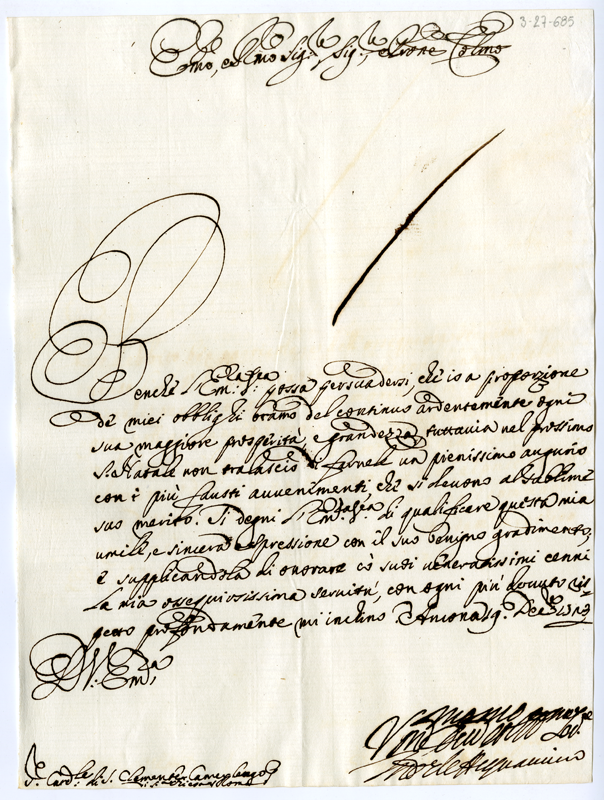 3-27-685
Em̃o, e Rmo Sig.re, Sig.re e Prone Colmo
Benchè l'Em.za V.ra possa persuadersi, che io a proporzione
de miei obblighi bramo del continuo ardentemente ogni
sua maggiore prosperità, e grandezza, tuttavia nel prossimo
S. Natale non tralascio di farnele un pienissimo augurio
con i più fausti avvenimenti, che si devono al sublime
suo merito. Si degni l'Em.za V.ra di qualificare questa mia
umile, e sincera espressione con il suo benigno gradimento,
e supplicandola di onorare cò suoi veneratissimi cenni
la mia ossequiosissima servitù, con ogni più dovuto ris=
petto profondamente mi inchino. Ancona
D V. Em.za
Sr. Card.le di S. Clemente Camerlengo